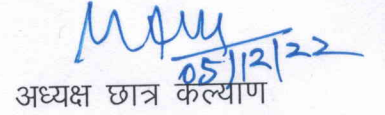 05/12/22
अध्यक्ष छात्र कल्याण